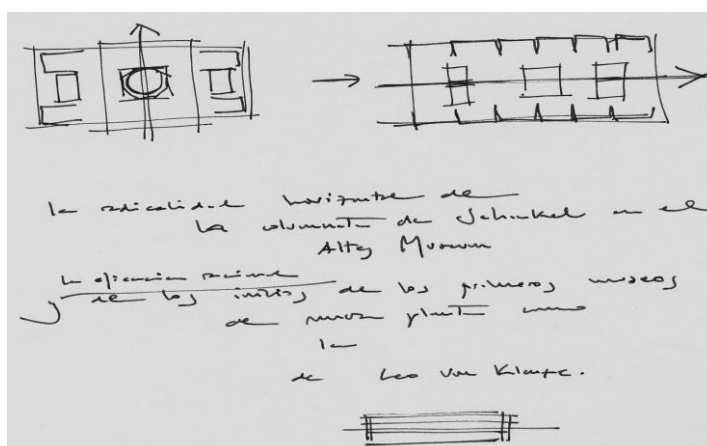 la radicalidad horizontal de
la columnata de Schinkel en el
Altes Museum
y la eficiencia racional
de los inicios de los primeros museos
de nueva planta como
la
de Leo von Klenze.